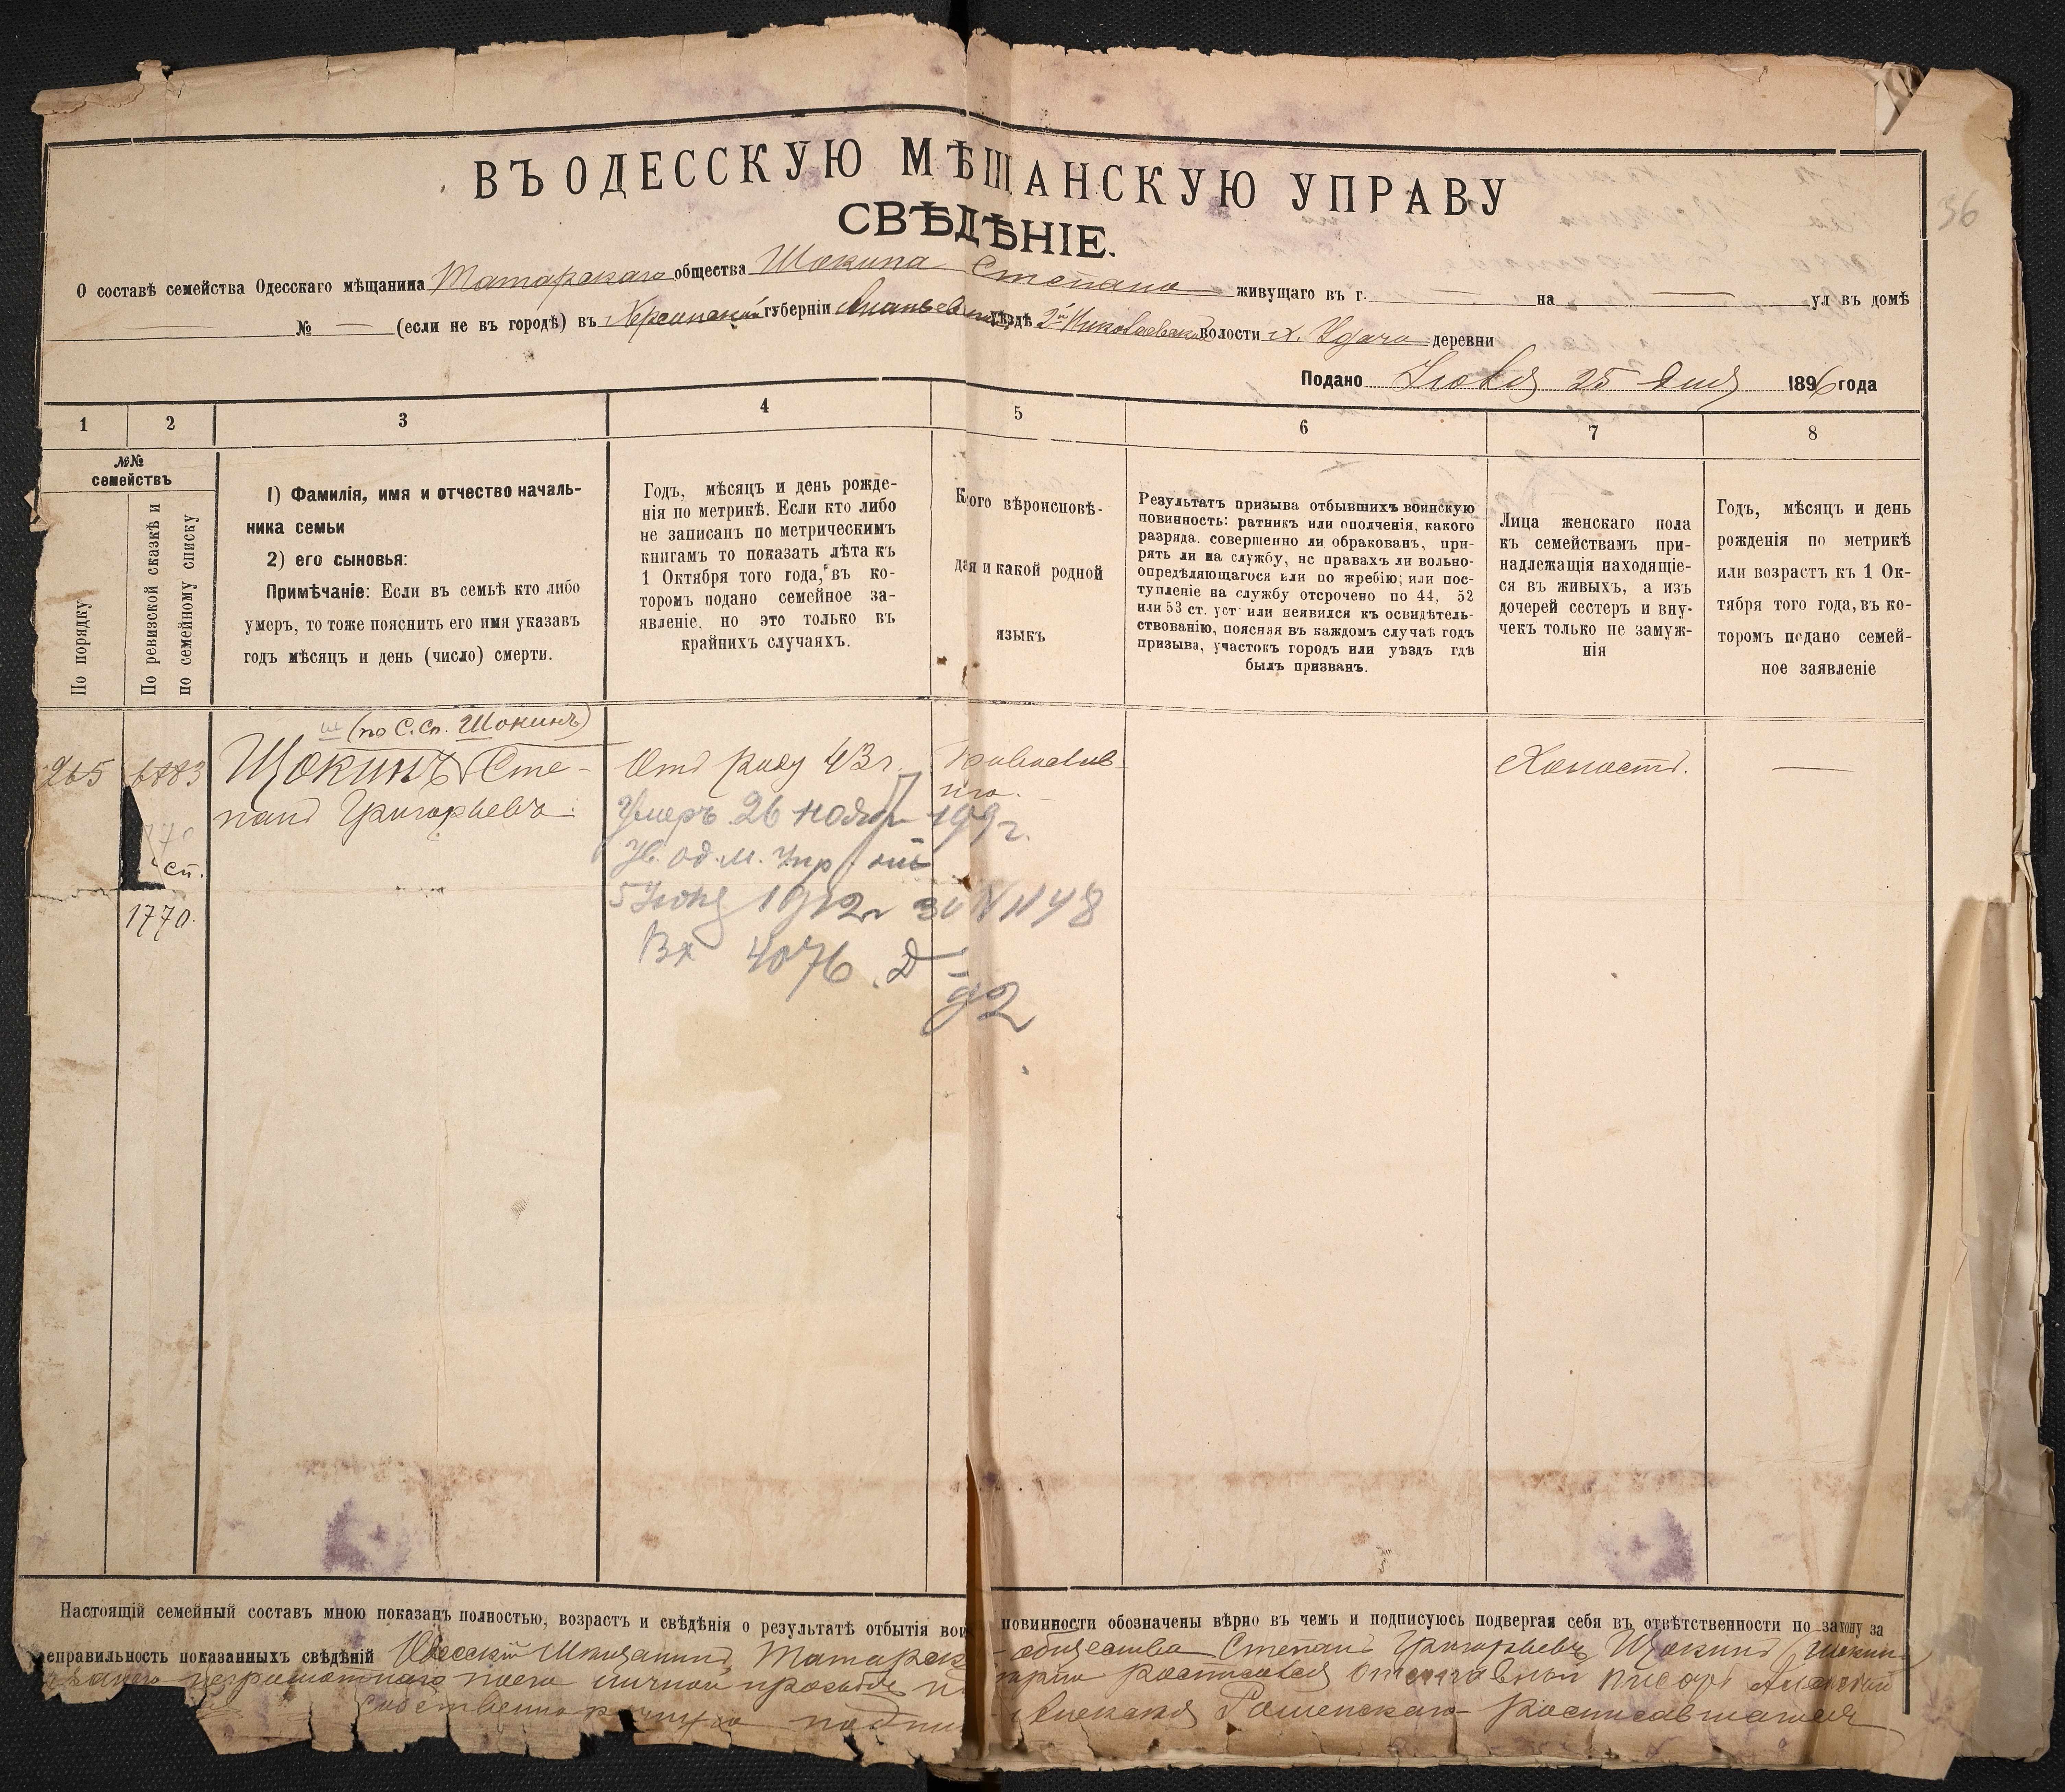 36
ВЪ ОДЕССКУЮ МѢЩАНСКУЮ УПРАВУ
СВѢДѢНІЕ.
О составѣ семейства Одесскаго мѣщанина Татарскаго общества Шокина Степана живущаго въ г. — на — ул въ домѣ
№ — (если не въ городѣ) въ Херсонской губерніи Ананьевскомъ уѣздѣ 2й Николаевской волости х. Удача деревни
Подано Іюля 25 дня 1896 года
1 2 3 4 5 6 7 8
№№ семействъ
По порядку
По ревизской сказкѣ и
по семейному списку
1) Фамилія, имя и отчество началь-
ника семьи
2) его сыновья:
Примѣчаніе: Если въ семьѣ кто либо
умеръ, то тоже пояснить его имя указавъ
годъ мѣсяцъ и день (число) смерти.
Годъ, мѣсяцъ и день рожде-
нія по метрикѣ. Если кто либо
не записанъ по метрическимъ
книгамъ то показать лѣта къ
1 Октября того года, въ ко-
торомъ подано семейное за-
явленіе, но это только въ
крайнихъ случаяхъ.
Кого вѣроисповѣ-
данія и какой родной
языкъ
Результатъ призыва отбывшихъ воинскую
повинность: ратникъ или ополченія, какого
разряда. совершенно ли обракованъ, при-
рять ли на службу, нс правахъ ли вольно-
опредѣляющагося или по жребію; или пос-
тупленіе на службу отсрочено по 44, 52
или 53 ст. уст или неявился къ освидѣтель-
ствованію, поясняя въ каждомъ случаѣ годъ
призыва, участокъ городъ или уѣздъ гдѣ
былъ призванъ.
Лица женскаго пола
къ семействамъ при-
надлежащія находящіе-
ся въ живыхъ, а изъ
дочерей сестеръ и вну-
чекъ только не замуж-
нія
Годъ, мѣсяцъ и день
рожденія по метрикѣ
или возрастъ къ 1 Ок-
тября того года, въ ко-
торомъ подано семей-
ное заявленіе
265
6883
сп.
1770.
ш (по С. Сп. Шокинъ)
Щокинъ Сте-
панъ Григорьевъ
Отъ роду 43 г.
Умеръ 26 ноября
Ув. од. м. упр. отъ
5 Іюня 1912 г за N 1148
Вх 4076 Д
92
Православ
наго.
Холостъ.
—
Настоящій семейный составъ мною показанъ полностью, возрастъ и свѣдѣнія о результатѣ отбытія вои повинности обозначены вѣрно въ чемъ и подписуюсь подвергая себя въ отвѣтственности по закону за
еправильность показанныхъ свѣдѣній Одесскій Мѣщанинъ Татарск общества Степанъ Григорьевъ Щокинъ (Шокин
неграмотнаго по его личной просьбѣ росписался отставной писарь Алексѣй
Собственноручную подпи Алексѣя росписавшагося